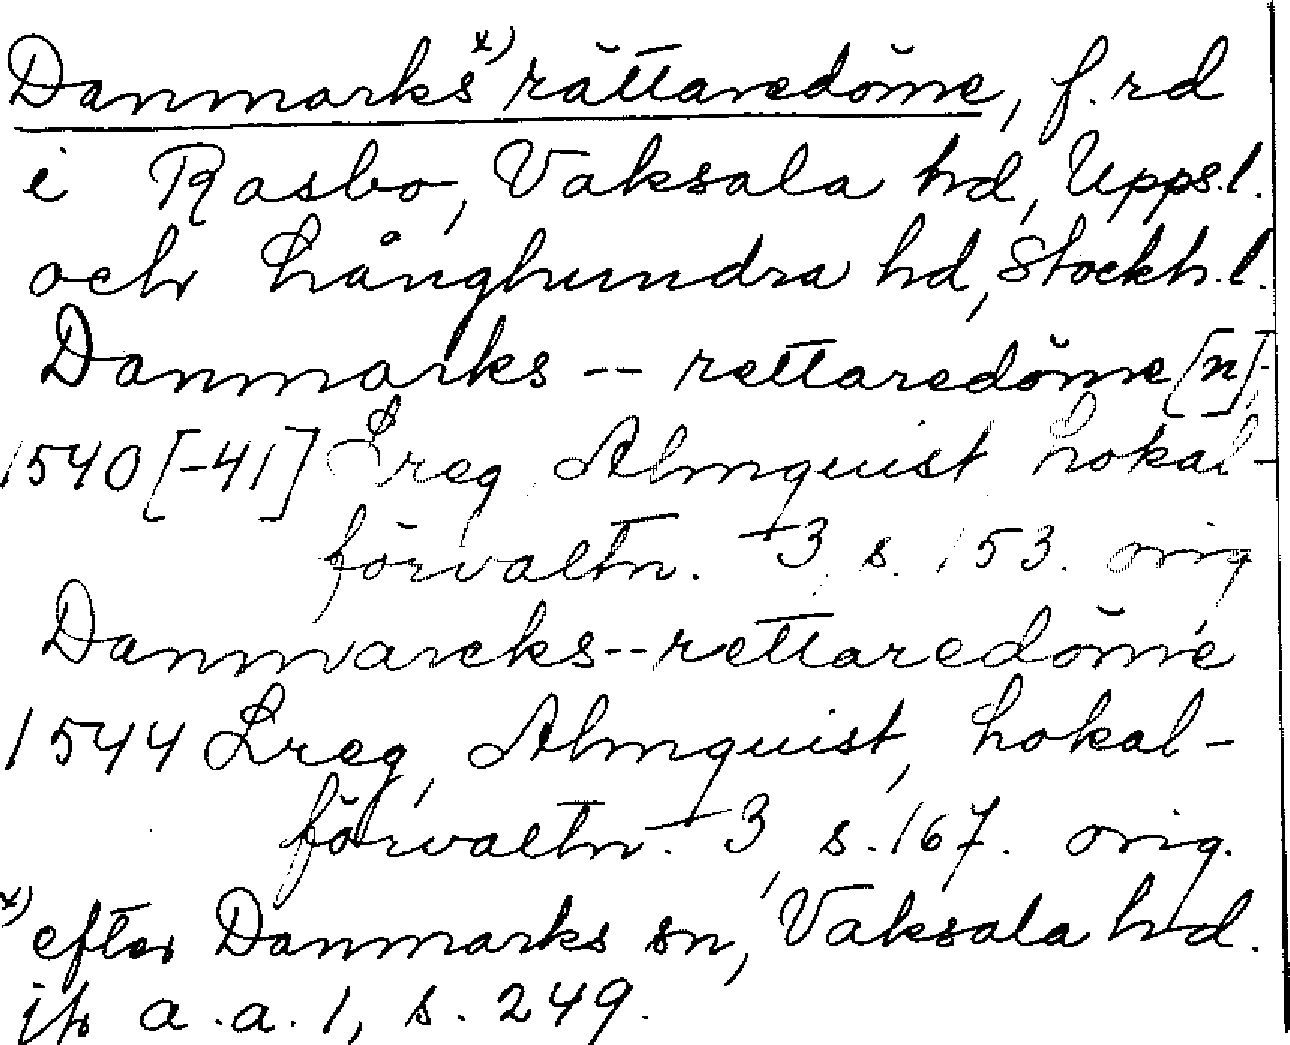 Danmarks x) rättaredöme, f. rd
i Rasbo, Vaksala hd, Upps.l.
och Långhundra hd, Stockh.l.
Danmarks -- rettaredöme[n],
1540[-41] Lreg, Almquist Lokal-
förvaltn. 3, s. 153. orig
Danmarcks--rettaredöme
1544 Lreg, Almquist, Lokal-
förvaltn. 3, s. 167. orig.
x) efter Danmarks sn, Vaksala hd.
jfr a.a. 1, s. 249.